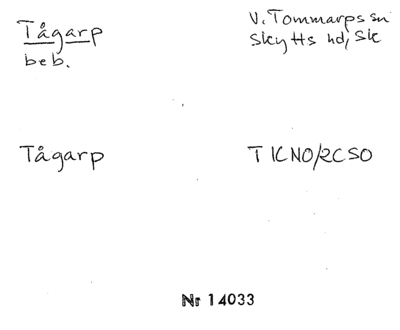 Tågarp
beb.
V. Tommarps sn
Skytts hd, Sk
Tågarp
T 1CNO/2CSO
Nr 14033